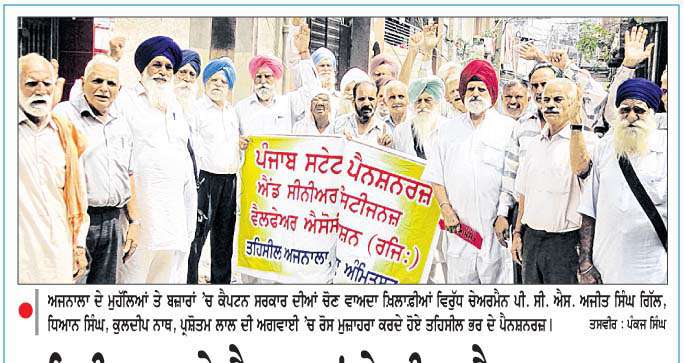 ਪੰਜਾਬ ਸਟੇਟ ਪੈਨਸ਼ਨਰਜ਼
ਐਂਡ ਸੀਨੀਅਰ ਸਿਟੀਜਨਜ਼
ਵੈਲਫੇਅਰ ਐਸੋਸੀਏਸ਼ਨ (ਰਜਿ:)
ਤਹਿਸੀਲ ਅਜਨਾਲਾ
ਅਜਨਾਲਾ ਦੇ ਮੁਹੱਲਿਆਂ ਤੇ ਬਜ਼ਾਰਾਂ 'ਚ ਕੈਪਟਨ ਸਰਕਾਰ ਦੀਆਂ ਚੋਣ ਵਾਅਦਾ ਖ਼ਿਲਾਫ਼ੀਆਂ ਵਿਰੁੱਧ ਚੇਅਰਮੈਨ ਪੀ. ਸੀ. ਐਸ. ਅਜੀਤ ਸਿੰਘ ਗਿੱਲ,
ਧਿਆਨ ਸਿੰਘ, ਕੁਲਦੀਪ ਨਾਥ, ਪ੍ਰਸ਼ੋਤਮ ਲਾਲ ਦੀ ਅਗਵਾਈ 'ਚ ਰੋਸ ਮੁਜ਼ਾਹਰਾ ਕਰਦੇ ਹੋਏ ਤਹਿਸੀਲ ਭਰ ਦੇ ਪੈਨਸ਼ਨਰਜ਼। ਤਸਵੀਰ : ਪੰਕਜ ਸਿੰਘ